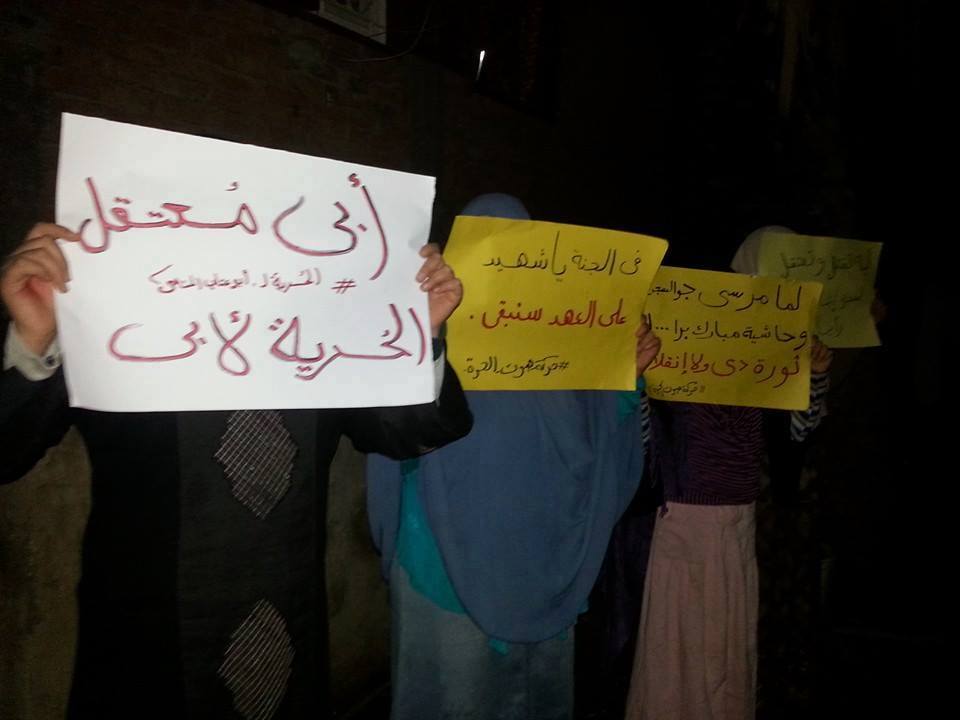 أبى مُعتقل
# الحُرية لـ
الحُرية لأبى
فى الجنة يا شهيد
على العهد سنبقى .
#حركة_صوت_الحرة
لما مرسى جوا السجن
وحاشية مبارك برا ...
ثورة دى ولا إنقلاب
ليه تقتل وتعتقل